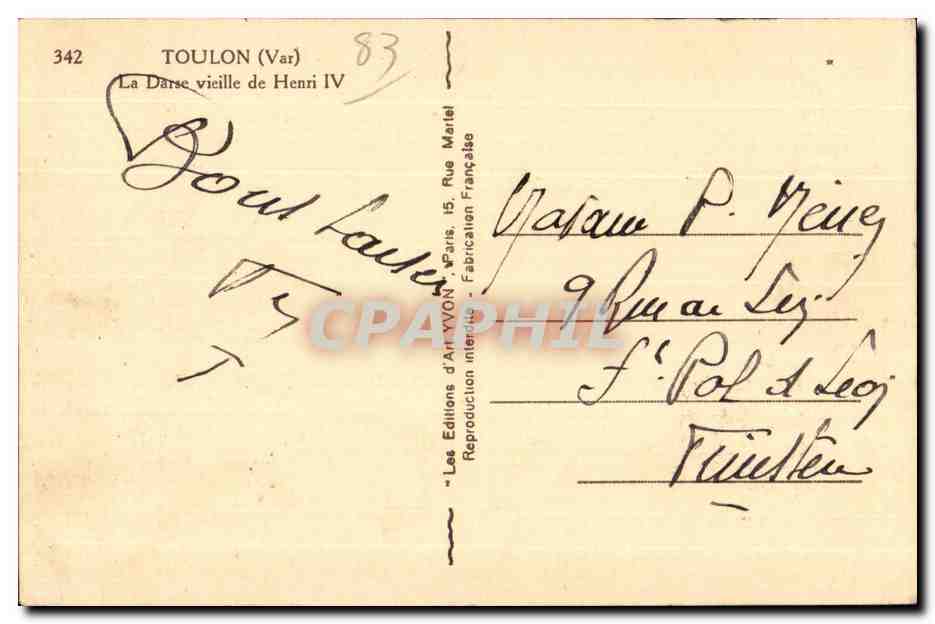 342 TOULON (Var)
La Darse vieille de Henri IV
83
Bons baisers
"Les Editions d'Art YVON", Paris, 15, Rue Martel
Reproduction interdite - Fabrication Française
Madame P.
9 Rue de
St Pol d Leon
Finistère
CPAPHIL